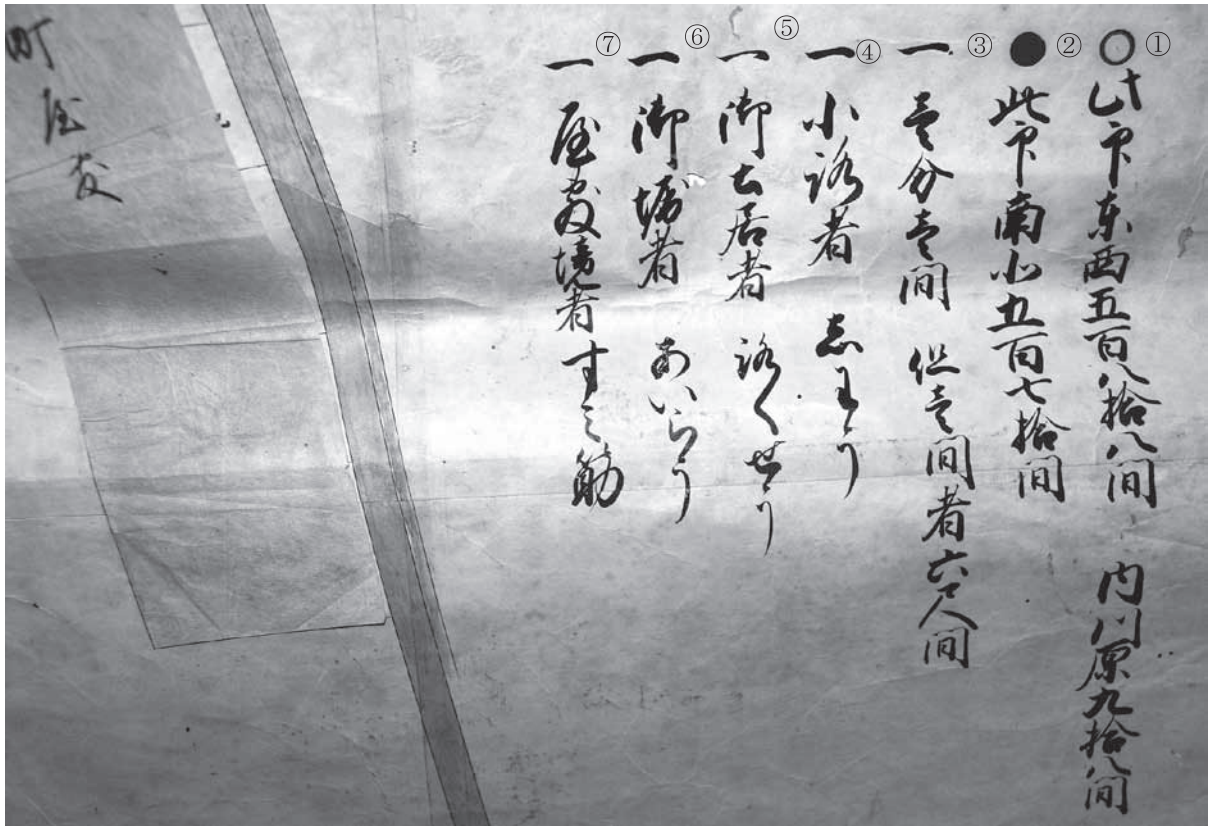 ① ○ 此印東西五百八拾八間 内川原九拾八間
② ● 此印南北五百七拾間
③ 一 壱分壱間 但壱間者六尺間
④ 一 小路者 志ゆり
⑤ 一 御土居者 ろくせう
⑥ 一 御堀者 あいらう
⑦ 一 屋敷境者すミ筋
町屋敷